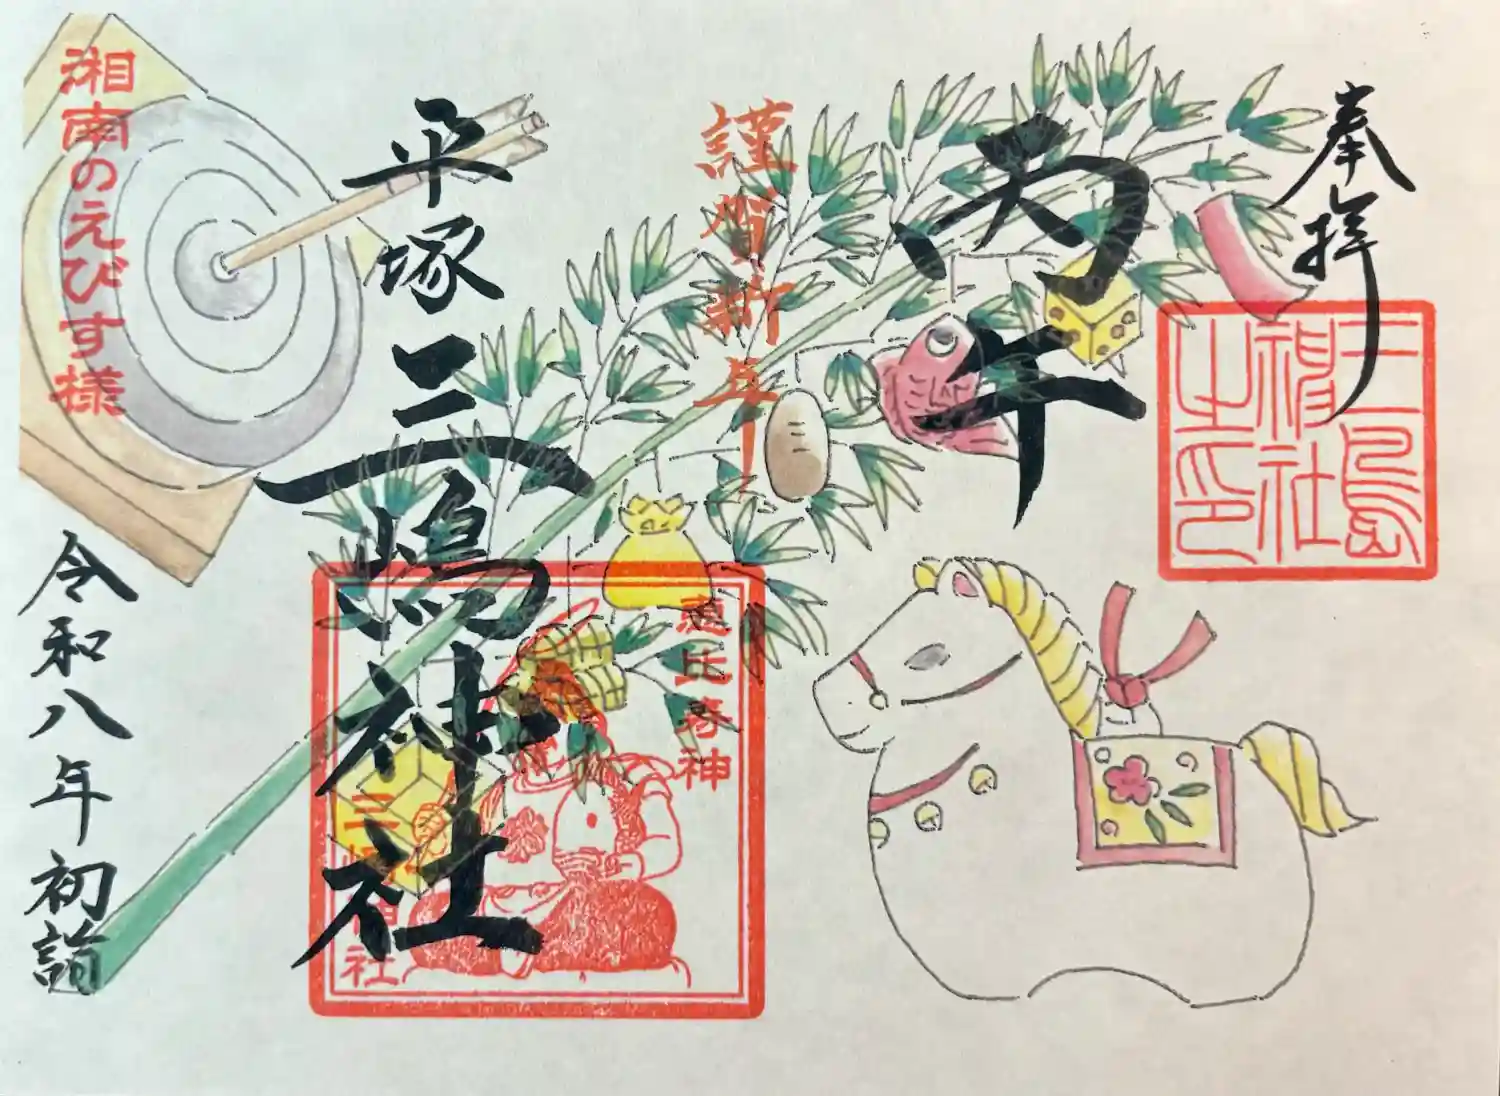 奉拝
三島
神社
之印
丙午
謹賀新年
平塚三嶋神社
恵比寿神
三嶋神社
湘南のえびす様
令和八年初詣